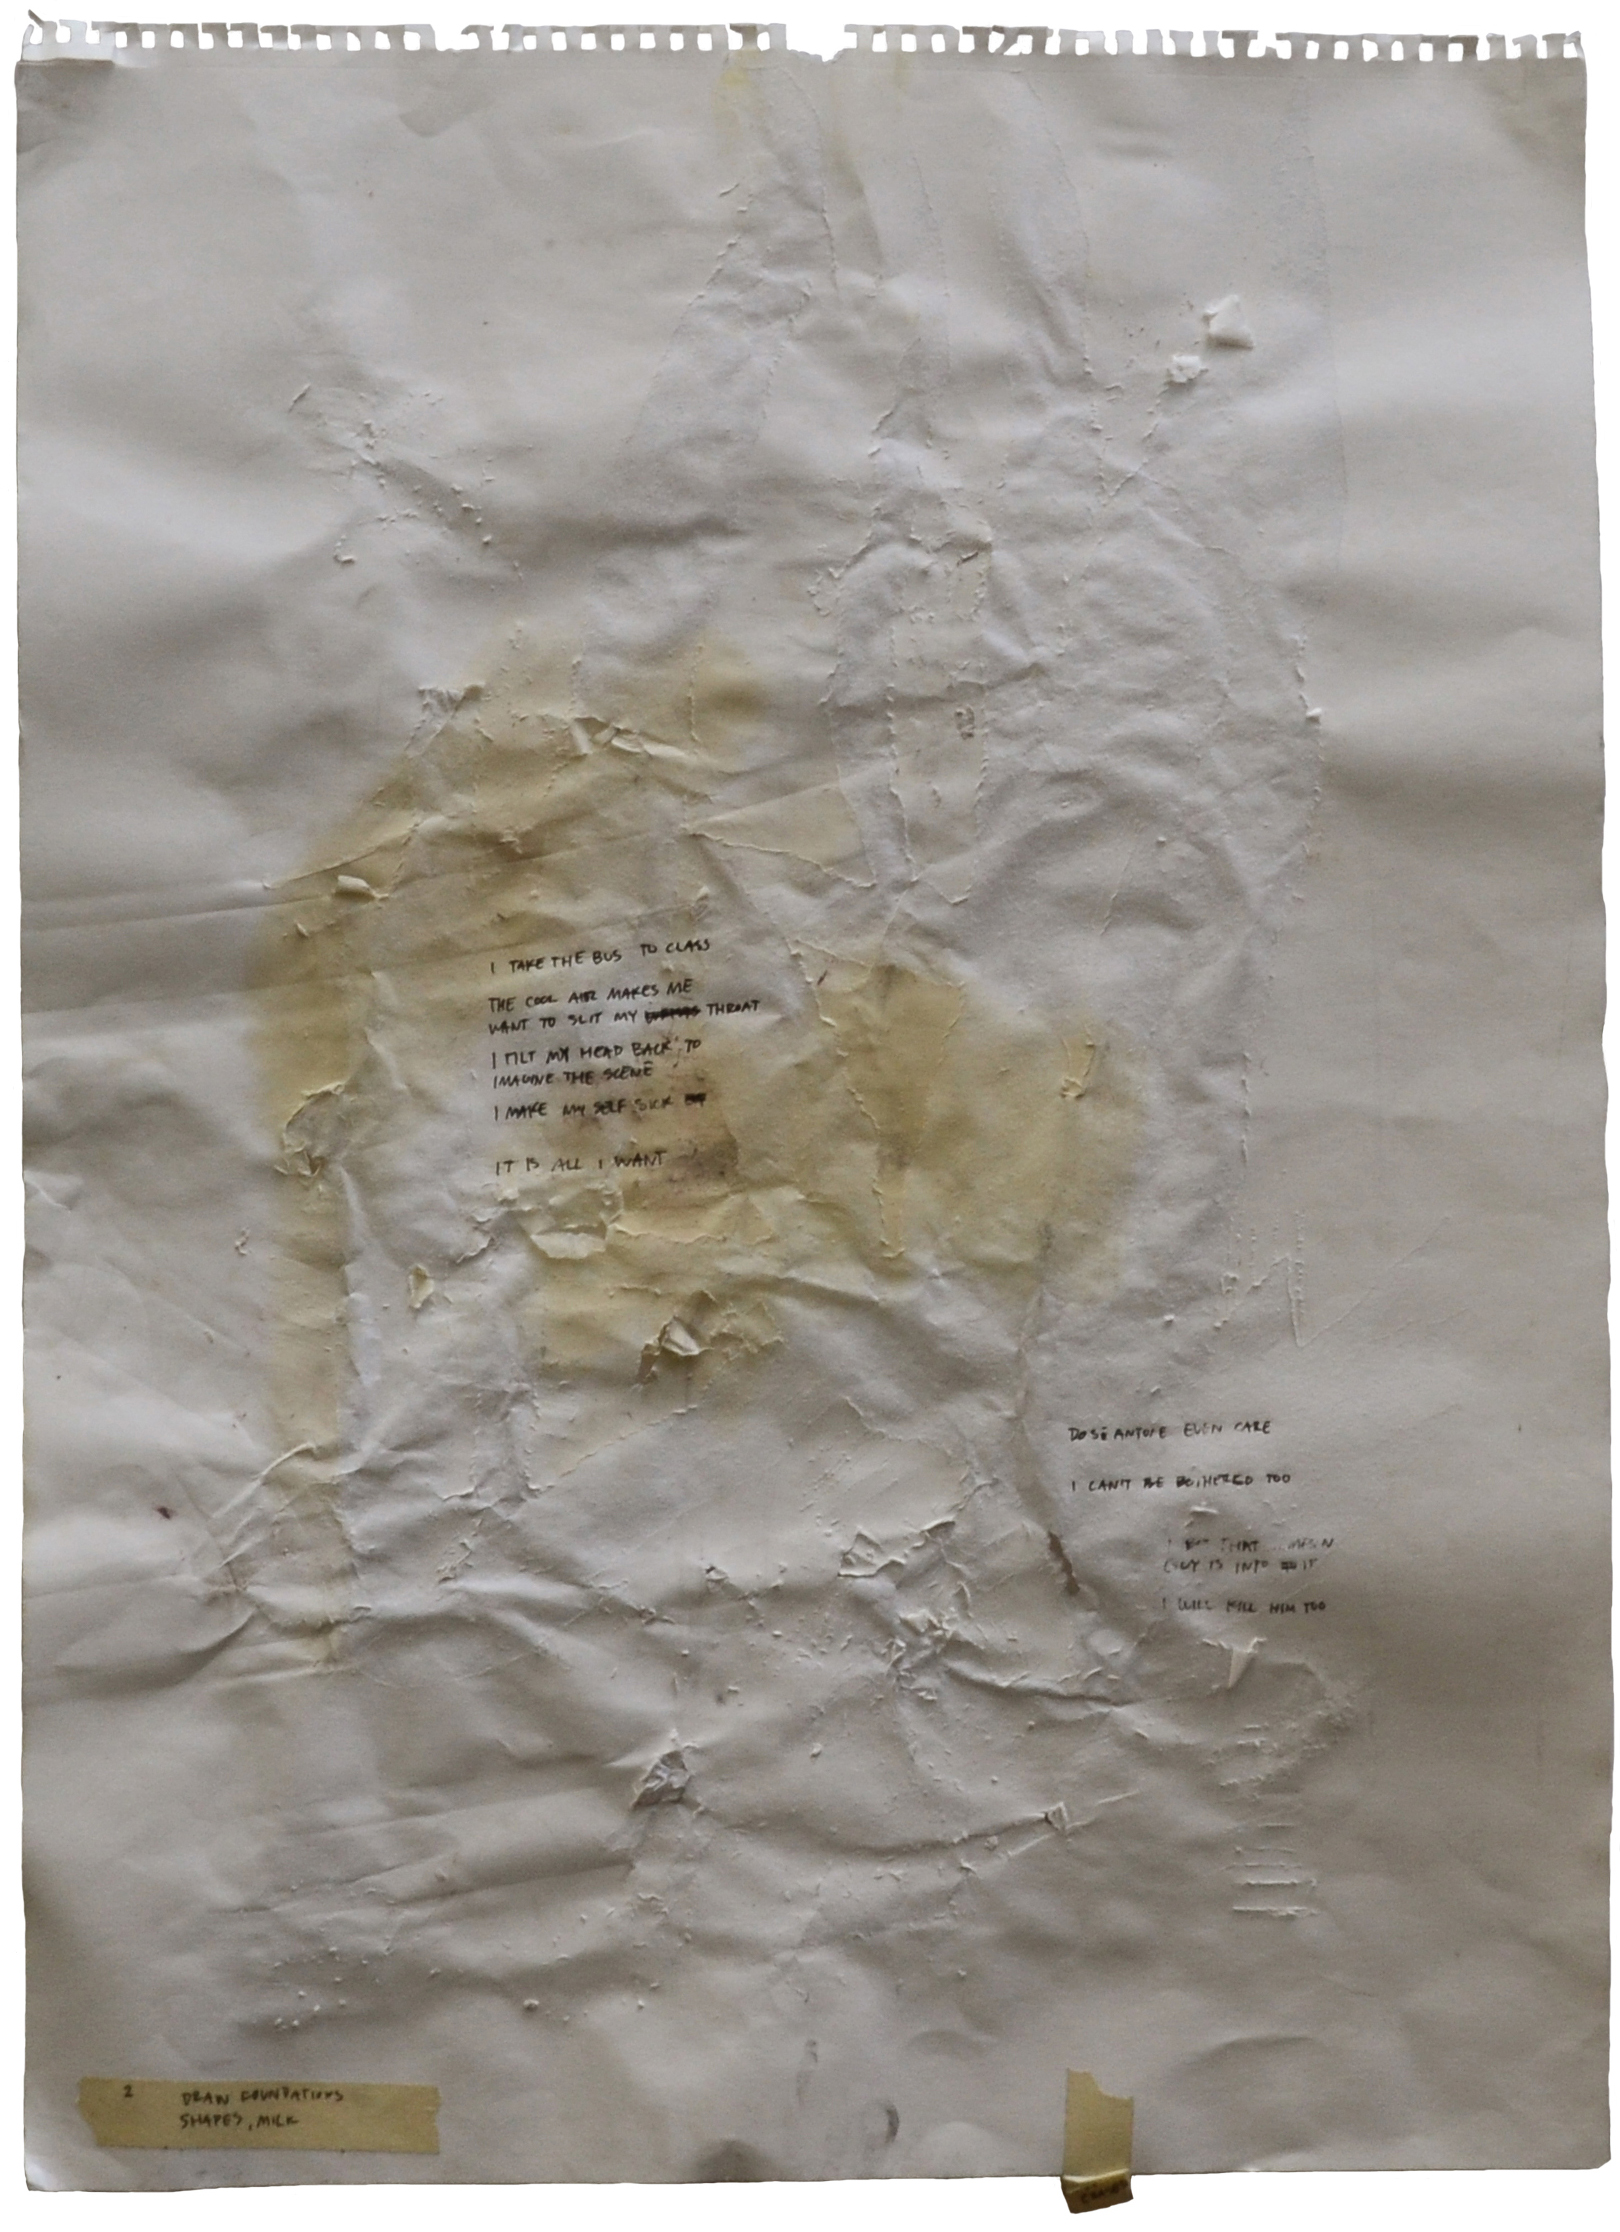 I TAKE THE BUS TO CLASS
THE COOL AIR MAKES ME
WANT TO SLIT MY THROAT
I TILT MY HEAD BACK TO
IMAGINE THE SCENE
I MAKE MY SELF SICK
IT IS ALL I WANT
DOSE ANYONE EVEN CARE
I CAN'T BE BOTHERED TOO
I BET THAT
GUY IS INTO IT
I WILL KILL HIM TOO
2 DRAW FOUNDATIONS
SHAPES, MILK